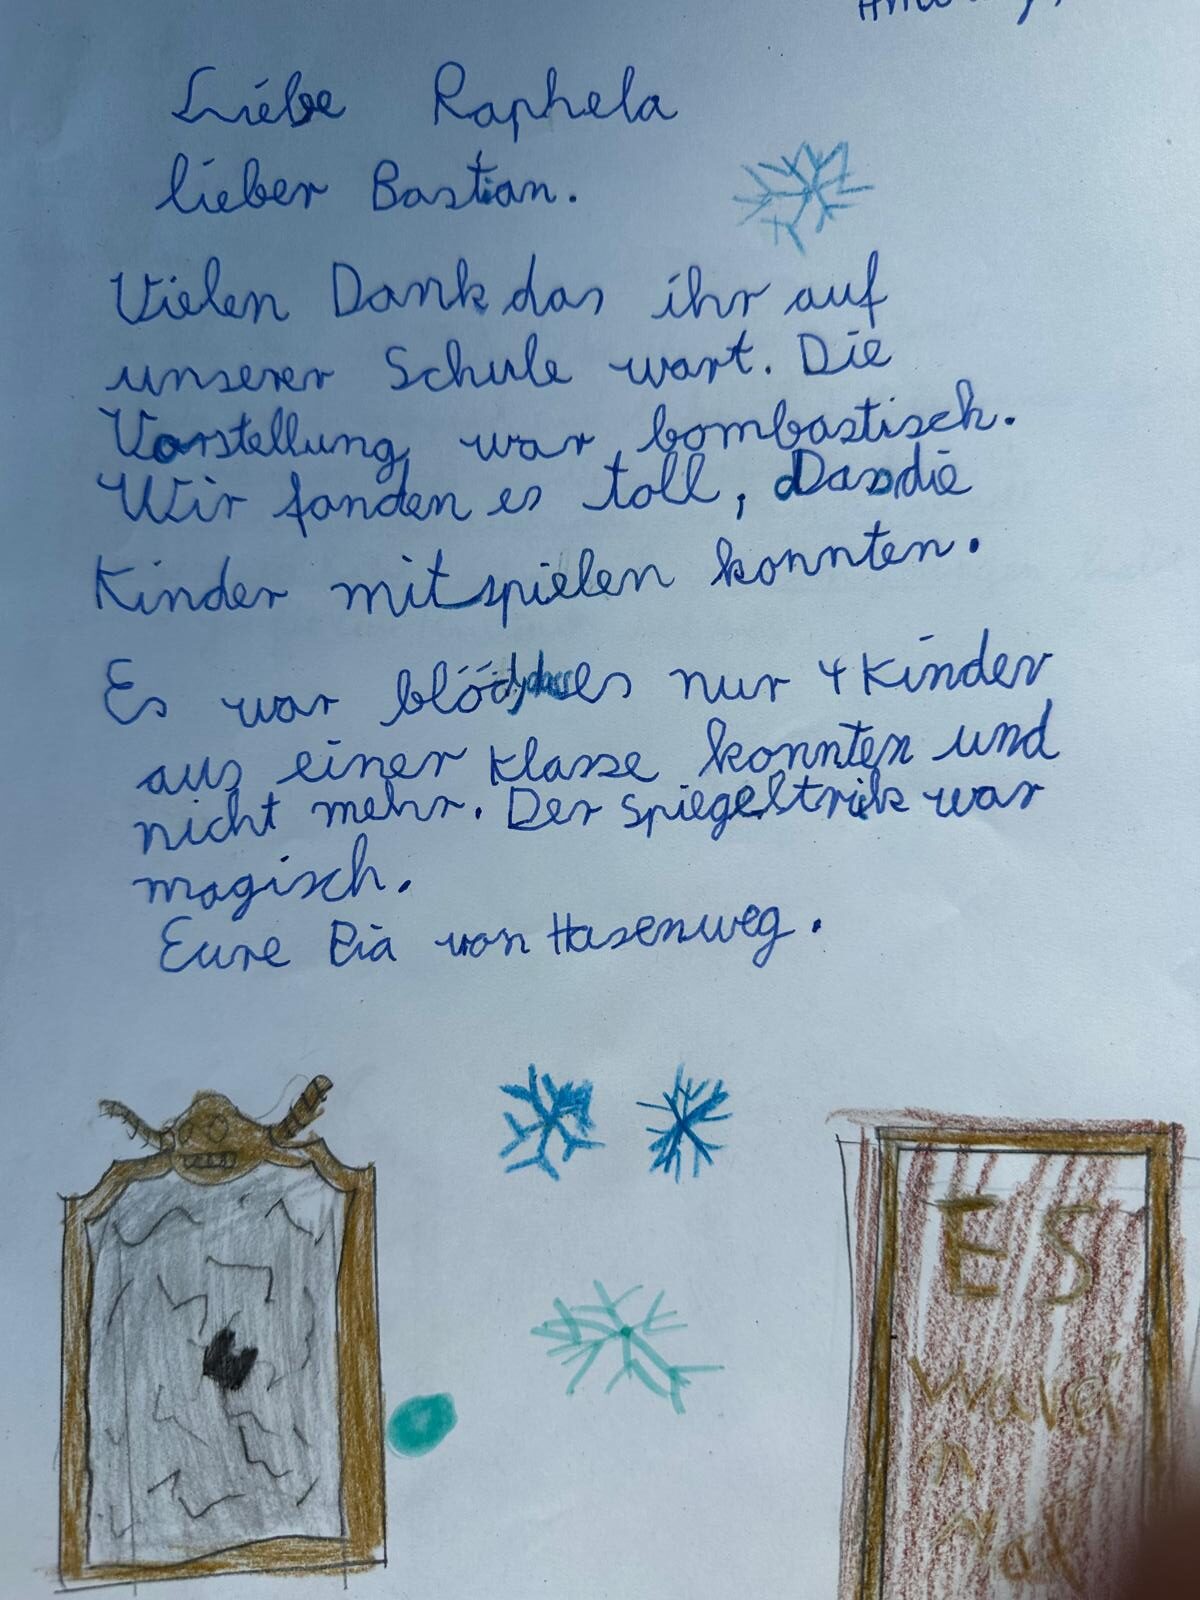 Liebe Raphela
lieber Bastian.
Vielen Dank das ihr auf
unserer Schule wart. Die
Vorstellung war bombastisch.
Wir fanden es toll, Das die
Kinder mitspielen konnten.
Es war blöd, dass es nur 4 Kinder
aus einer Klasse konnten und
nicht mehr. Der Spiegeltrik war
magisch.
Eure Pia von Hasenweg.
ES